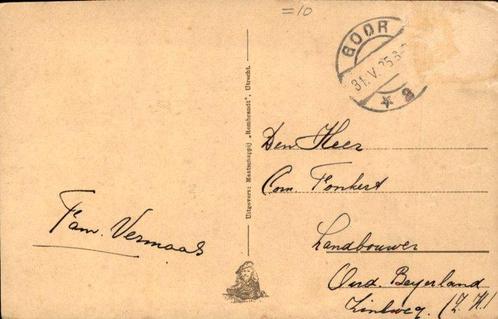 =10
GOOR
31.V.25.8-
* a
Uitgevers: Maatschappij „Rembrandt", Utrecht.
Den Heer
Corn. Fonkert
Landbouwer
Oud Beyerland
Zinkweg (Z.H.)
Fam. Vermaas